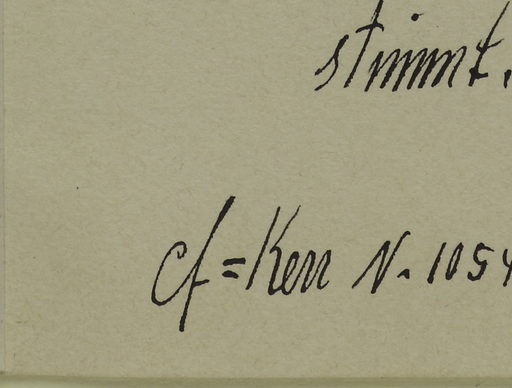 stimmt.
cf = Kerr N. 1054